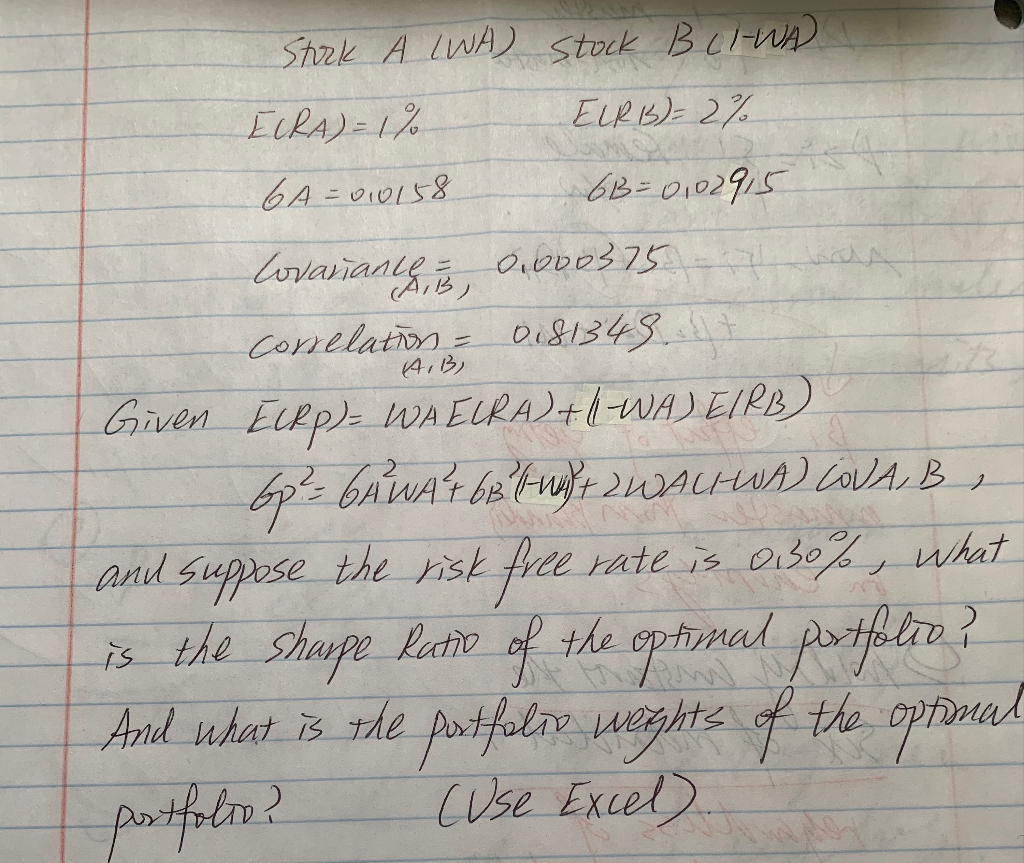 Stock A (WA) Stock B (1-WA)
E(RA)=1% E(RB)=2%
6A=0.0158 6B=0.02915
Covariance (A,B) = 0.000375
correlation (A,B) = 0.81349.
Given E(Rp)= WA E(RA)+(1-WA) E(RB)
6p²= 6A²WA²+6B²(1-WA)²+2WA(1-WA) COVA,B ,
and suppose the risk free rate is 0.30%, what
is the sharpe Ratio of the optimal portfolio?
And what is the portfolio weights of the optimal
portfolio? (Use Excel).